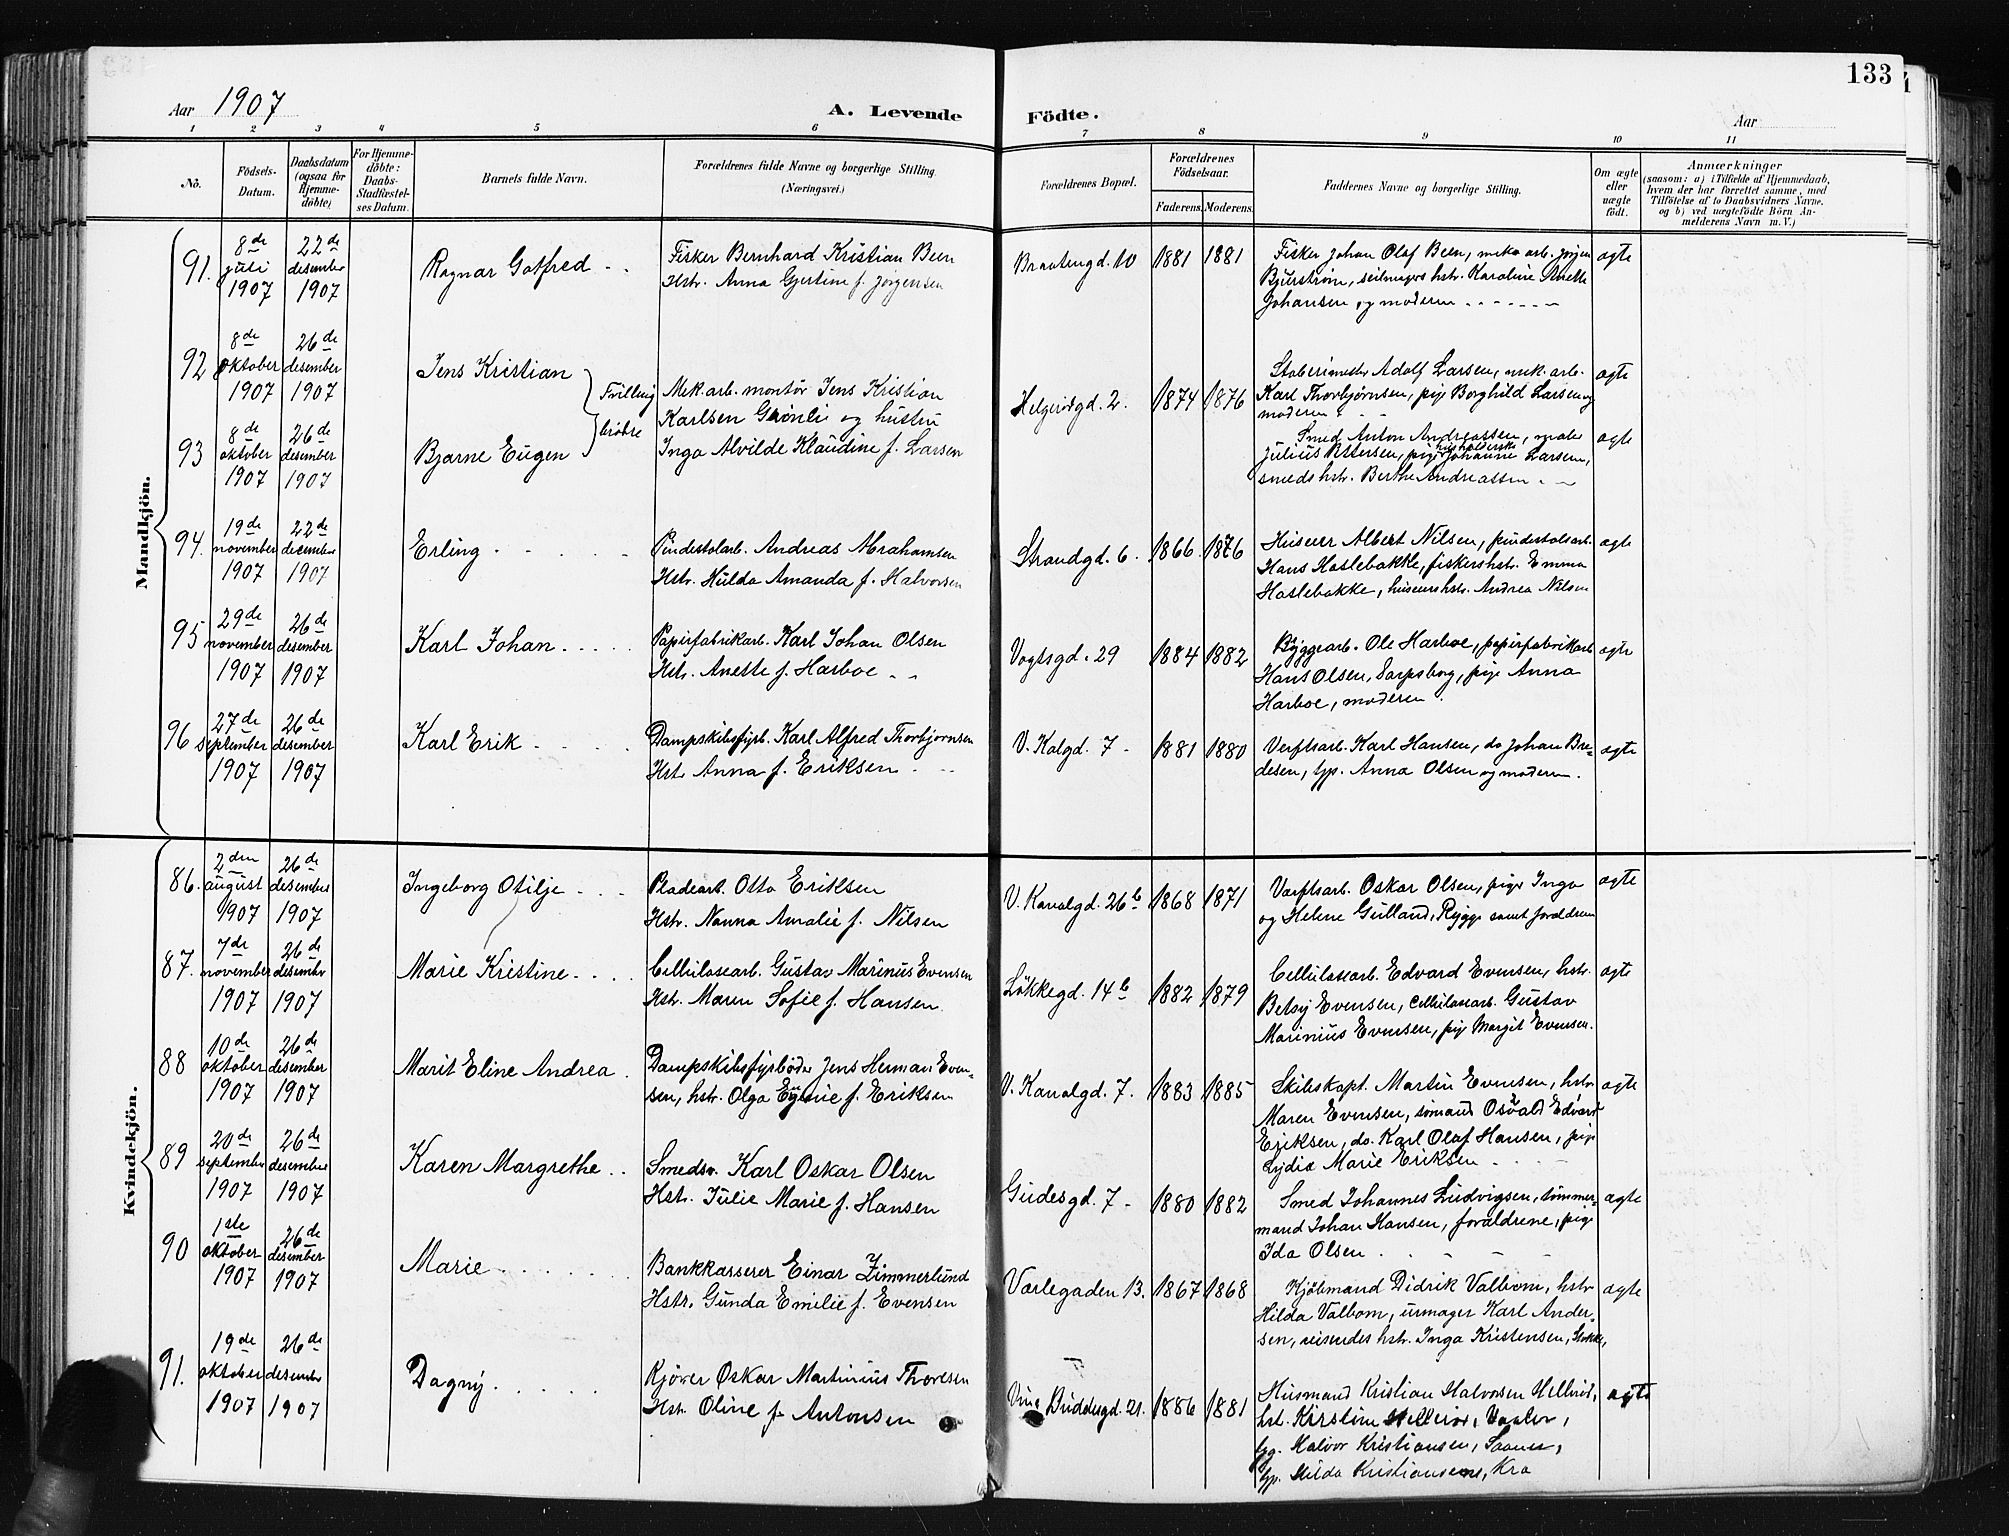 133
Aar 1907
A. Levende Födte.
Aar
1 2 3 4 5 6 7 8 9 10 11
No.
Födsels-Datum.
Daabsdatum (ogsaa for Hjemme-döbte)
For Hjemme-döbte: Daabs-Stadfæstel-ses Datum.
Barnets fulde Navn.
Forældrenes fulde Navne og borgerlige Stilling. (Næringsvei.)
Forældrenes Bopæl.
Forældrenes Födselsaar.
Faderens. Moderens.
Faddernes Navne og borgerlige Stilling.
Om ægte eller uægte födt.
Anmærkninger
(saasom: a) i Tilfælde af Hjemmedaab, hvem der har forrettet samme, med Tilföielse af to Daabsvidners Navne, og b) ved uægtefödte Börn An-melderens Navn m. V.)
Mandkjön.
91. 8de juli 1907 22de desember 1907
Ragnar Gotfred
Fisker Bernhard Kristian Been
Hstr. Anna Gjertine f. Jørgensen
1881 1881
Fisker Johan Olaf Been, mek. arb. Jörgen
Bjürström, seilmagers hstr. Karoline Anette
Johansen og moderen
ægte
92 8de oktober 1907 26de desember 1907
Jens Kristian
Tvilling brødre
Mek. arb. montör Jens Kristian
Karlsen Grönli og hustru
Inga Alvilde Klaudine f. Larsen
Helgerödgd. 2. 1874 1876
Adolf Larsen, mek. arb.
Karl Thorbjørnsen, pige Borghild Larsen og
moderen
ægte
93 8de oktober 1907 26de desember 1907
Bjarne Eugen
Smed Anton Andreassen, maler
Julius Pettersen, pige husholderske Johanne Larsen,
smeds hstr. Berthe Andreassen
ægte
94. 19de november 1907 22de desember 1907
Erling
Pindestolarb. Andreas Abrahamsen
Hstr. Hulda Amanda f. Halvorsen
Strandgd. 6. 1866 1876
Huseier Albert Nilsen, pindestolsarb.
Hans Haslebakke, fiskers hstr. Emma
Haslebakke, huseiers hstr. Andrea Nilsen
ægte
95 29de november 1907 26de desember 1907
Karl Johan
Papirfabrikarb. Karl Johan Olsen
Hstr. Anette f. Harboe
Vogtsgd. 29 1884 1882
Byggearb. Ole Harboe, papirfabrikarb
Hans Olsen, Sarpsborg, pige Anna
Harboe, moderen
ægte
96 27de september 1907 26de desember 1907
Karl Erik
Dampskibsfyrb. Karl Alfred Thorbjørnsen
Hstr. Anna f. Eriksen
V. Kalgd. 7 1881 1880
Verftsarb. Karl Hansen, do Johan Bre-
desen, tjp. Anna Olsen og moderen.
ægte
Kvindekjön.
86. 2den august 1907 26de desember 1907
Ingeborg Otilje
Pladearb. Otto Eriksen
Hstr. Nanna Amalie f. Nilsen
V. Kanalgd. 26b 1868 1871
Værftsarb. Oskar Olsen, pige Inga
og Helene Gulland, Rygge samt forældrene
ægte
87. 7de november 1907 26de desember 1907
Marie Kristine
Cellulosearb. Gustav Marinus Evensen
Hstr. Maren Sofie f. Hansen
Løkkegd. 14b 1882 1879
Cellulosearb. Edvard Evensen, hstr.
Betsy Evensen, cellulosearb. Gustav
Marinius Evensen, pige Margit Evensen.
ægte
88 10de oktober 1907 26de desember 1907
Marit Eline Andrea
Dampskibsfyrböder Jens Herman Even-
sen, hstr. Olga f. Eriksen
V. Kanalgd. 7. 1883 1885
Skibskapt. Martin Evensen, hstr
Maren Evensen, sømand Osvald Edvard
Eriksen, do. Karl Olaf Hansen, pige
Lydia Marie Eriksen
ægte
89 20de september 1907 26de desember 1907
Karen Margrethe
Smedsv. Karl Oskar Olsen
Hstr. Julie Marie f. Hansen
Gudesgd. 7 1880 1882
Smed Johannes Ludvigsen, tømmer-
mand Johan Hansen, forældrene, pige
Ida Olsen
ægte
90 1ste oktober 1907 26de desember 1907
Marie
Bankkasserer Einar Zimmerlund
Hstr. Gunda Emilie f. Evensen
Varlegaden 13. 1867 1868
Kjöbmand Didrik Valbom, hstr
Hilda Valbom, urmager Karl Ander-
sen, reisendes hstr. Inga Kristensen,
ægte
91. 19de oktober 1907 26de desember 1907
Dagny
Kjører Oskar Martinius Thoresen
Hstr. Oline f. Antonsen
1886 1881
Husmand Kristian Halvorsen Hellerød,
hst. Kirstine Hellerød, Vaaler,
gg. Halvor Kristiansen, Saaner,
tjp. Hilda Kristiansen, Kra
ægte